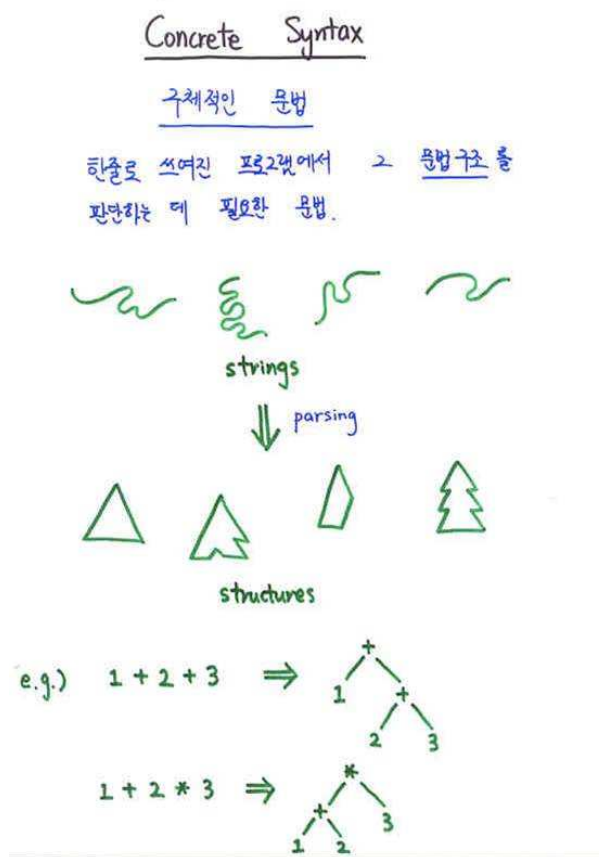 Concrete Syntax
구체적인 문법
한줄로 쓰여진 프로그램에서 그 문법구조를
판단하는 데 필요한 문법.
strings
⇓ parsing
structures
e.g.) 1 + 2 + 3 ⇒
+
1 +
2 3
1 + 2 * 3 ⇒
*
+ 3
1 2